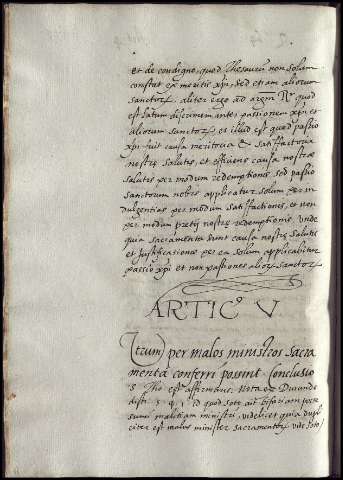 et de condigno, quod Thesaurus non solum
constat ex meritis xpi, sed etiam aliorum
sanctorȝ. aliter ergo ad argm R.r quod
est latum discrimen inter passionem xpi et
aliorum sanctorȝ et illud est quod passio
xpi fuit causa meritoria et satisfactoria
nostrę salutis, et efficiens causa nostræ
salutis per modum redemptionis, sed passio
sanctorum nobis applicatur solum per in
dulgentias per modum satisfactionis, et non
per modum pretij nostrę redemptionis. unde
quia sacramenta sunt causa nostrę salutis
et justificationis per ea solum applicabitur
passio xpi et non passiones aliorȝ sanctorȝ
ARTIC V
Utrum per malos ministros sacra
menta conferri possint. Conclusio
S. Tho. est affirmans. Nota ex Durando
disti. 5. q. 1. id quod Soto ait bifariam posse
sumi malitiam ministri, videlicet quia dupli
citer est malus minister sacramentorȝ vide Soto